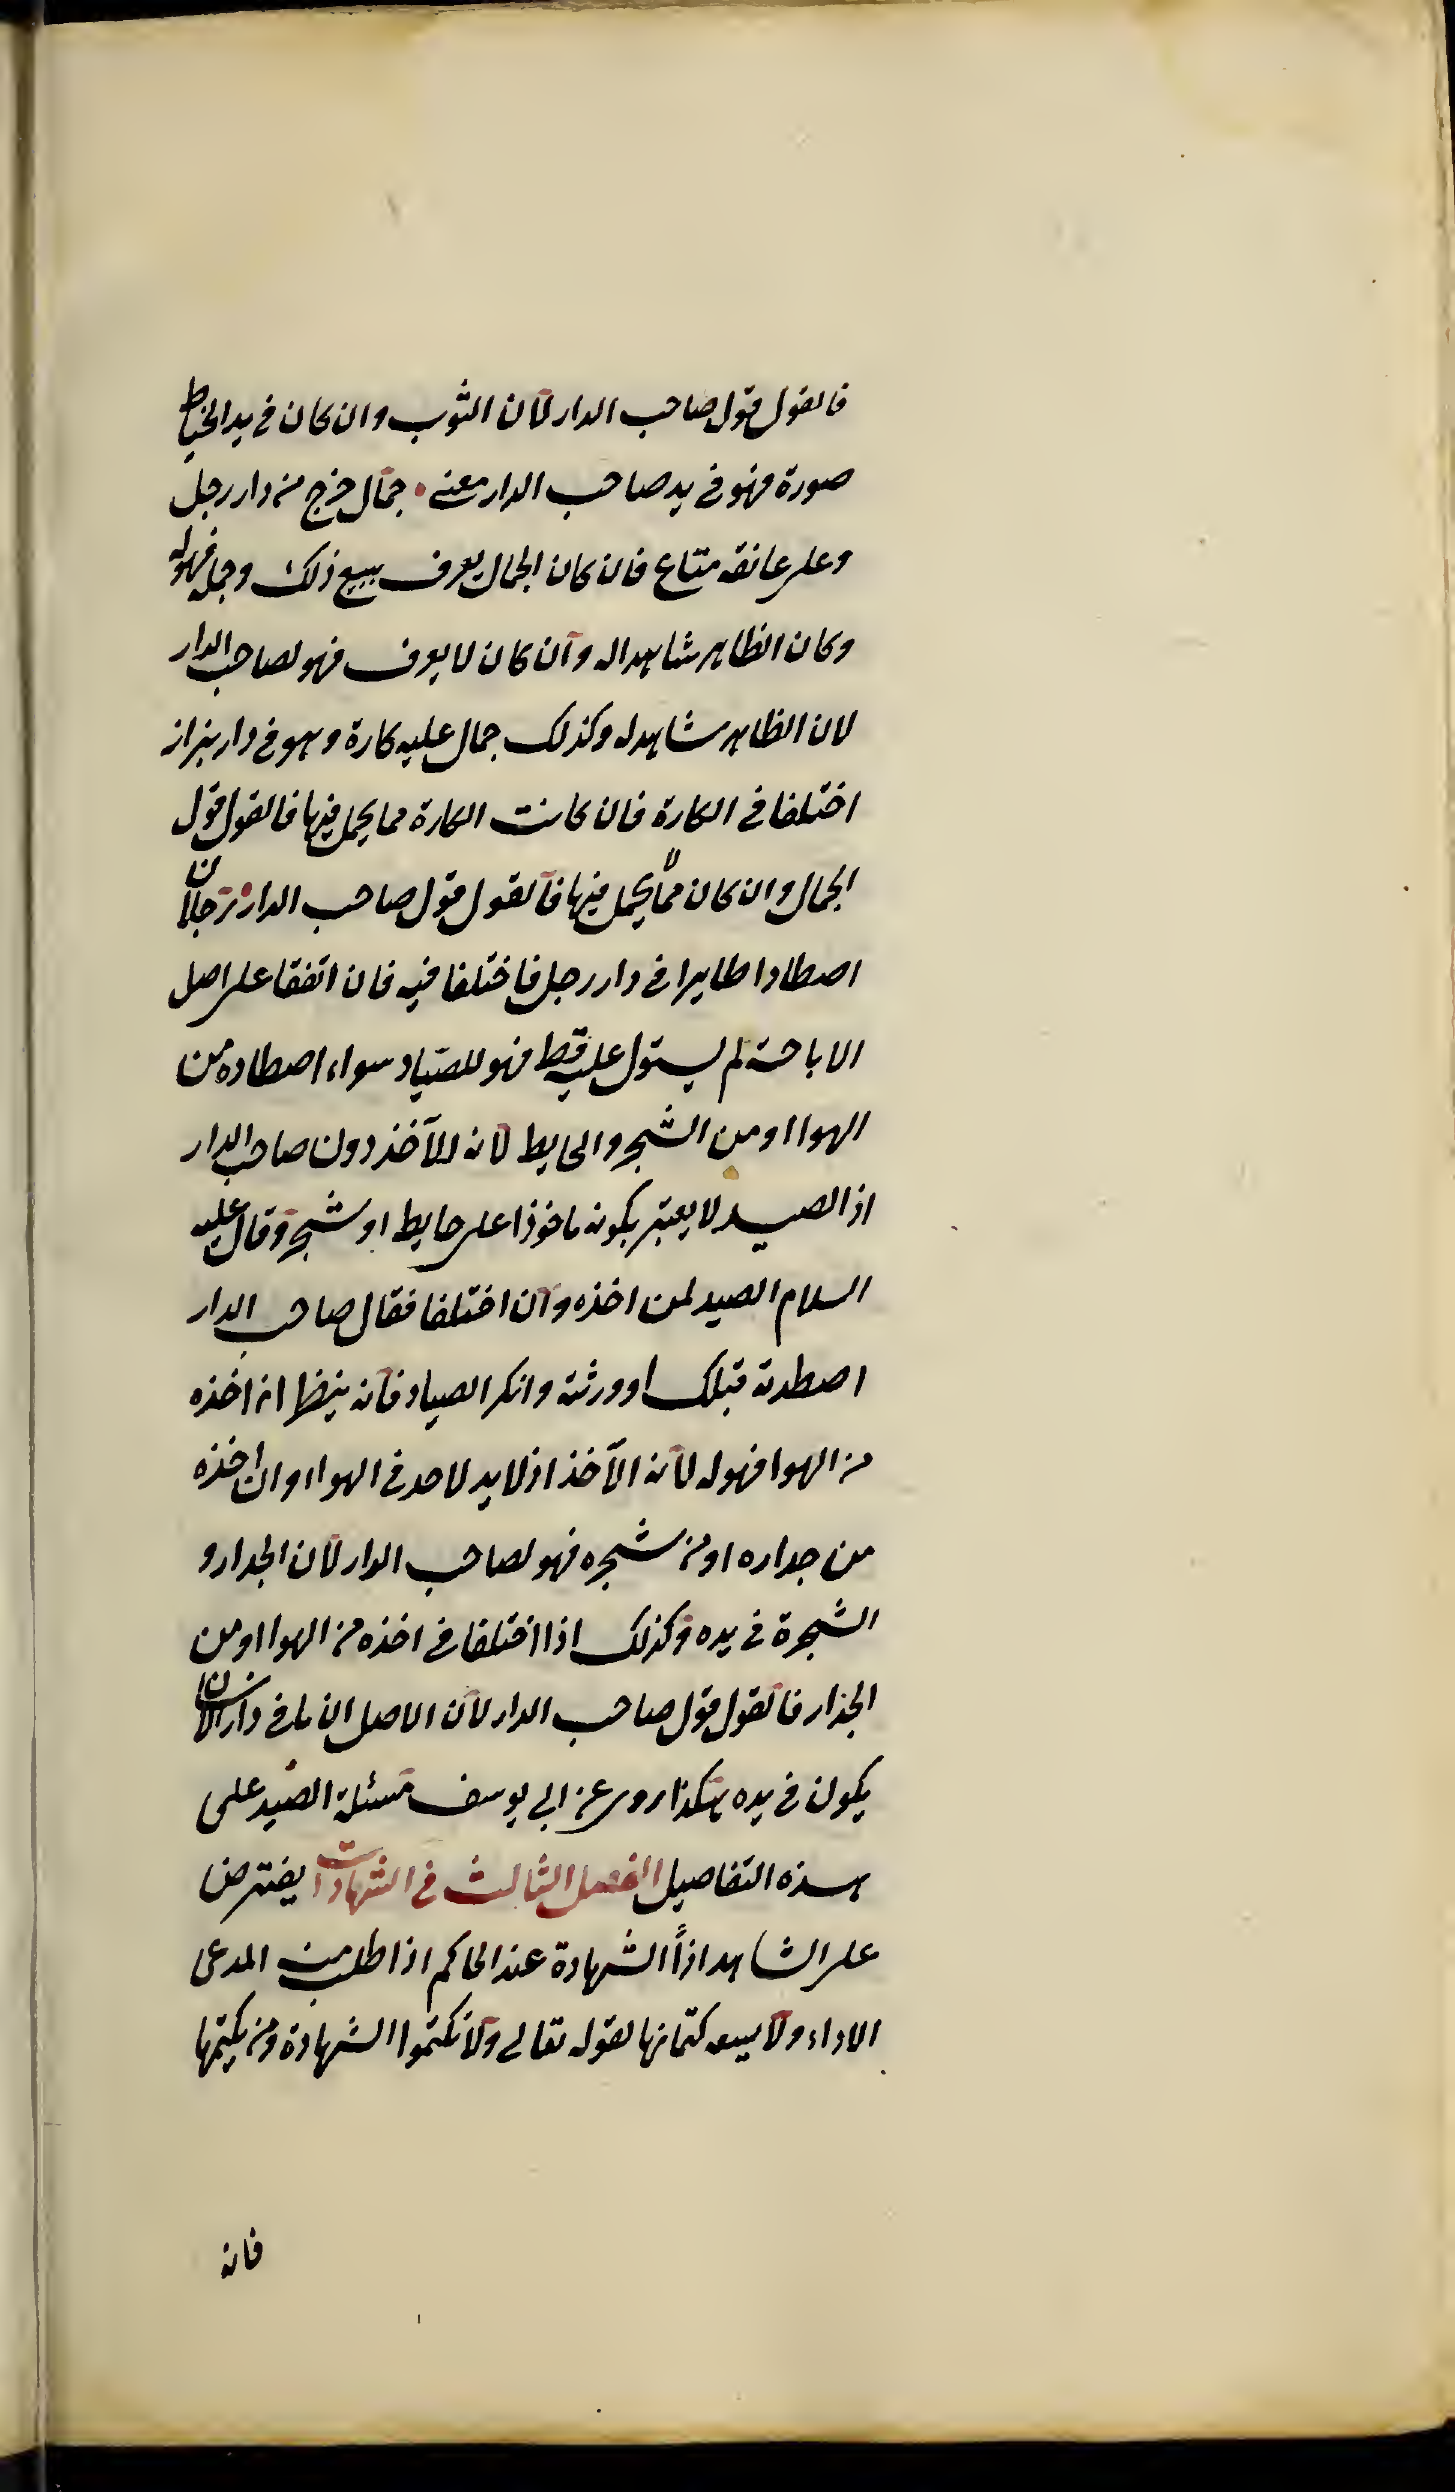 فالقول قول صاحب الدار لان الثوب وان كان في يد الخياط
صورة فهو في يد صاحب الدار معنى • حمّال خرج من دار رجل
وعلى عاتقه متاع فان كان الحمال يعرف ببيع ذلك وحمله فهو له
وكان الظاهر شاهدا له وان كان لا يعرف فهو لصاحب الدار
لان الظاهر شاهد له وكذلك حمال عليه كارة وهو في دار بزاز
اختلفا في الكارة فان كانت الكارة مما يحمل فيها فالقول قول
الحمال وان كان مما لا يحمل فيها فالقول قول صاحب الدار • رجلان
اصطادا طايرا في دار رجل فاختلفا فيه فان اتفقا على اصل
الاباحة لم يستول عليه قط فهو للصيّاد سواء اصطاده من
الهوا او من الشجر والحايط لانه للآخذ دون صاحب الدار
اذ الصيد لا يعتبر بكونه ماخوذا على حايط او شجر وقال عليه
السلام الصيد لمن اخذه وان اختلفا فقال صاحب الدار
اصطدته قبلك او ورثته وانكر الصياد فانه ينظر ان اخذه
من الهوا فهو له لانه الآخذ اذ لا يد لاحد في الهواء وان اخذه
من جداره او من شجره فهو لصاحب الدار لان الجدار و
الشجرة في يده وكذلك اذا اختلفا في اخذه من الهوا او من
الجدار فالقول قول صاحب الدار لان الاصل ان ما في دار الانسان
يكون في يده هكذا روى عن ابي يوسف مسئلة الصيد على
هذه التفاصيل الفصل الثالث في الشهادات يفترض
على الشاهد اذأ الشهادة عند الحاكم اذا طلب منه المدعى
الاداء ولا يسعه كتمانها لقوله تعالى ولا تكتموا الشهادة ومن يكتمها
فانه